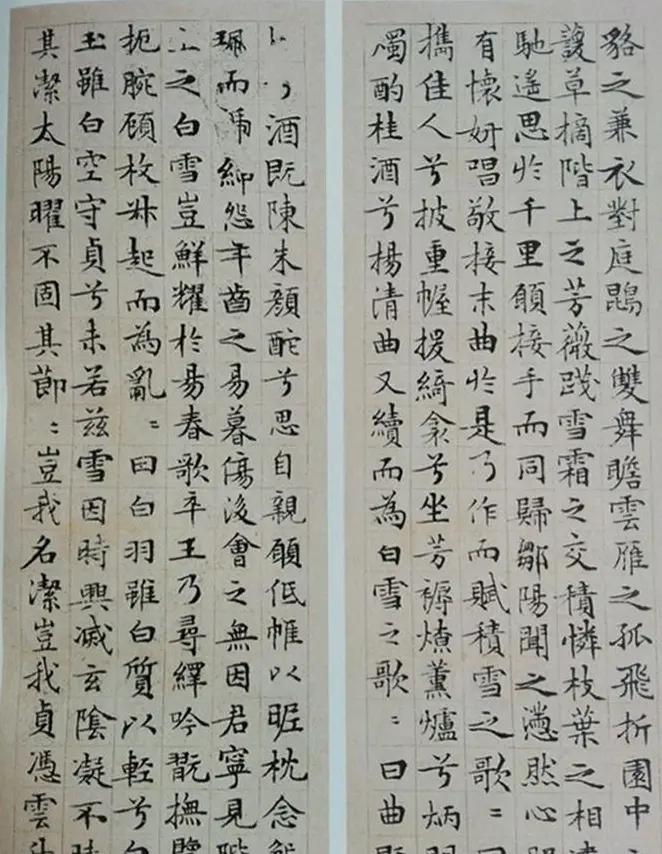 貉之兼衣對庭鵾之雙舞瞻雲雁之孤飛折園中
萲草摘階上之芳薇踐雪霜之交積憐枝葉之相違
馳遙思於千里願接手而同歸鄒陽聞之懣然心服
有懷妍唱敬接末曲於是乃作而賦積雪之歌〻曰
攜佳人兮披重幄援綺衾兮坐芳褥燎薰爐兮炳明
燭酌桂酒兮揚清曲又續而為白雪之歌〻曰曲既
兮酒既陳朱顏酡兮思自親願低帷以昵枕念解
珮而褫紳怨年齒之易暮傷後會之無因君寧見階
上之白雪豈鮮耀於昜春歌卒王乃尋繹吟翫撫覽
扼腕顧枚叔起而為亂〻曰白羽雖白質以輕兮白
玉雖白空守貞兮未若茲雪因時興滅玄陰凝不昧
其潔太陽曜不固其節〻豈我名潔豈我貞憑雲升